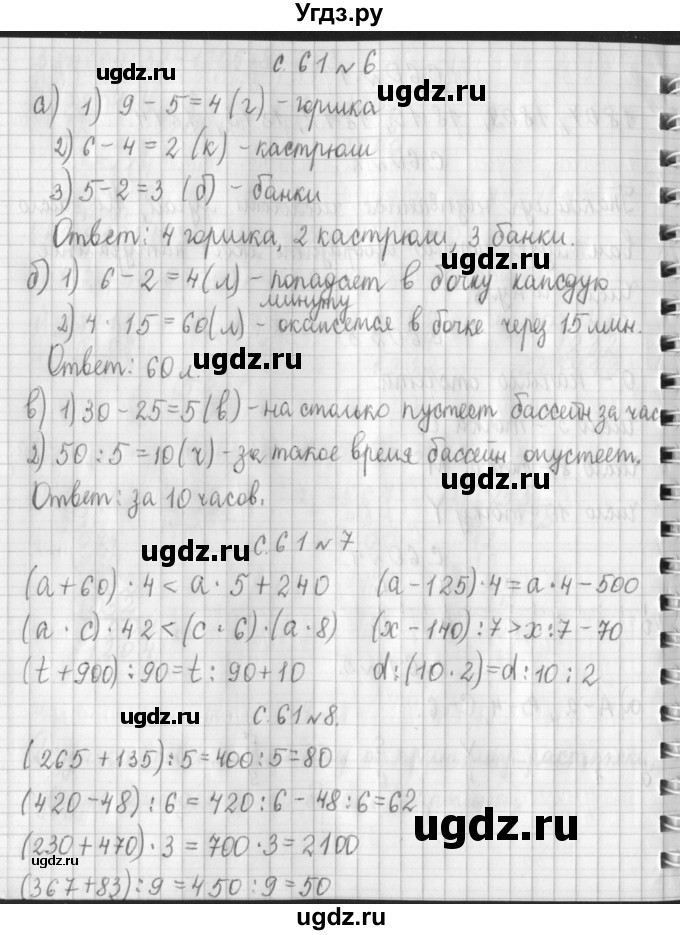 Угдз.ру
с. 61 № 6
ugdz.ru
а) 1) 9 - 5 = 4 (г) - горшка
ugdz.ru
2) 6 - 4 = 2 (к) - кастрюли
3) 5 - 2 = 3 (б) - банки
Ответ: 4 горшка, 2 кастрюли, 3 банки.
ugdz.ru
б) 1) 6 - 2 = 4 (л) - попадает в бочку каждую
минуту
2) 4 · 15 = 60 (л) - окажется в бочке через 15 мин.
Ответ: 60 л.
ugdz.ru
в) 1) 30 - 25 = 5 (в) - на столько пустеет бассейн за час
2) 50 : 5 = 10 (ч) - за такое время бассейн опустеет.
Ответ: за 10 часов.
ugdz.ru
с. 61 № 7
ugdz.ru
(a + 60) · 4 < a · 5 + 240 (a - 125) · 4 = a · 4 - 500
(a · c) · 42 < (c · 6) · (a · 8) (x - 140) : 7 > x : 7 - 70
(t + 900) : 90 = t : 90 + 10 d : (10 · 2) = d : 10 : 2
ugdz.ru
с. 61 № 8.
(265 + 135) : 5 = 400 : 5 = 80
(420 - 48) : 6 = 420 : 6 - 48 : 6 = 62
ugdz.ru
(230 + 470) · 3 = 700 · 3 = 2100
ugdz.ru
(367 + 83) : 9 = 450 : 9 = 50
ugdz.ru